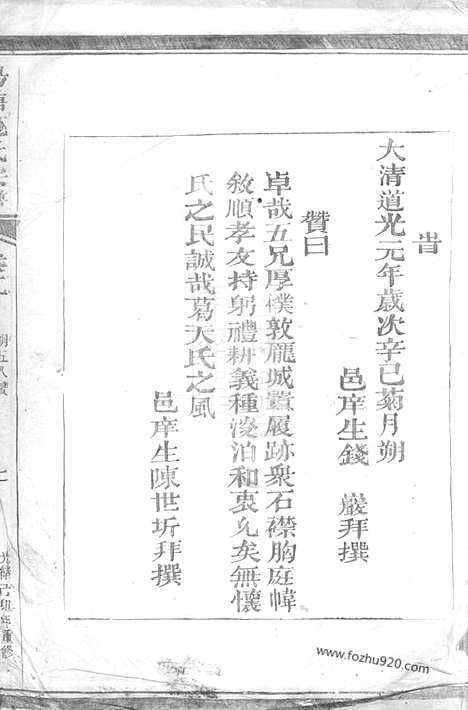 旹
大清道光元年歲次辛巳菊月朔
邑庠生錢 巖拜撰
贊曰
卓哉五兄厚樸敦龐城闉履跡衆石襟胸庭幃
敘順孝友持躬禮耕義種淡泊和衷允矣無懷
氏之民誠哉葛天氏之風
邑庠生陳世圻拜撰
氏宗譜
光緒己卯年重修
www.fozhu920.com